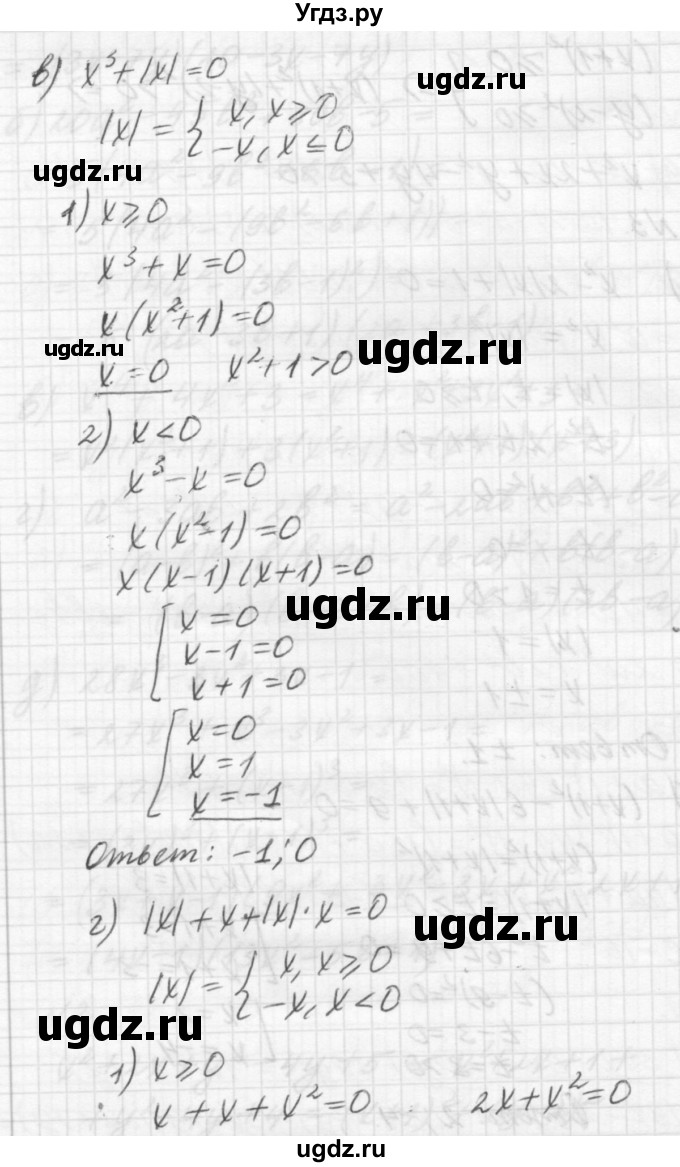 Угдз.ру
в) x³ + |x| = 0
ugdz.ru
|x| = { x, x ⩾ 0
-x, x ≤ 0
ugdz.ru
1) x ⩾ 0
x³ + x = 0
x(x² + 1) = 0
ugdz.ru
ugdz.ru
x = 0 x² + 1 > 0
2) x < 0
x³ - x = 0
x(x² - 1) = 0
x(x - 1)(x + 1) = 0
ugdz.ru
[ x = 0
x - 1 = 0
x + 1 = 0
[ x = 0
x = 1
x = -1
Ответ: -1; 0
г) |x| + x + |x| · x = 0
ugdz.ru
|x| = { x, x ⩾ 0
-x, x < 0
ugdz.ru
1) x ⩾ 0
x + x + x² = 0 2x + x² = 0
ugdz.ru